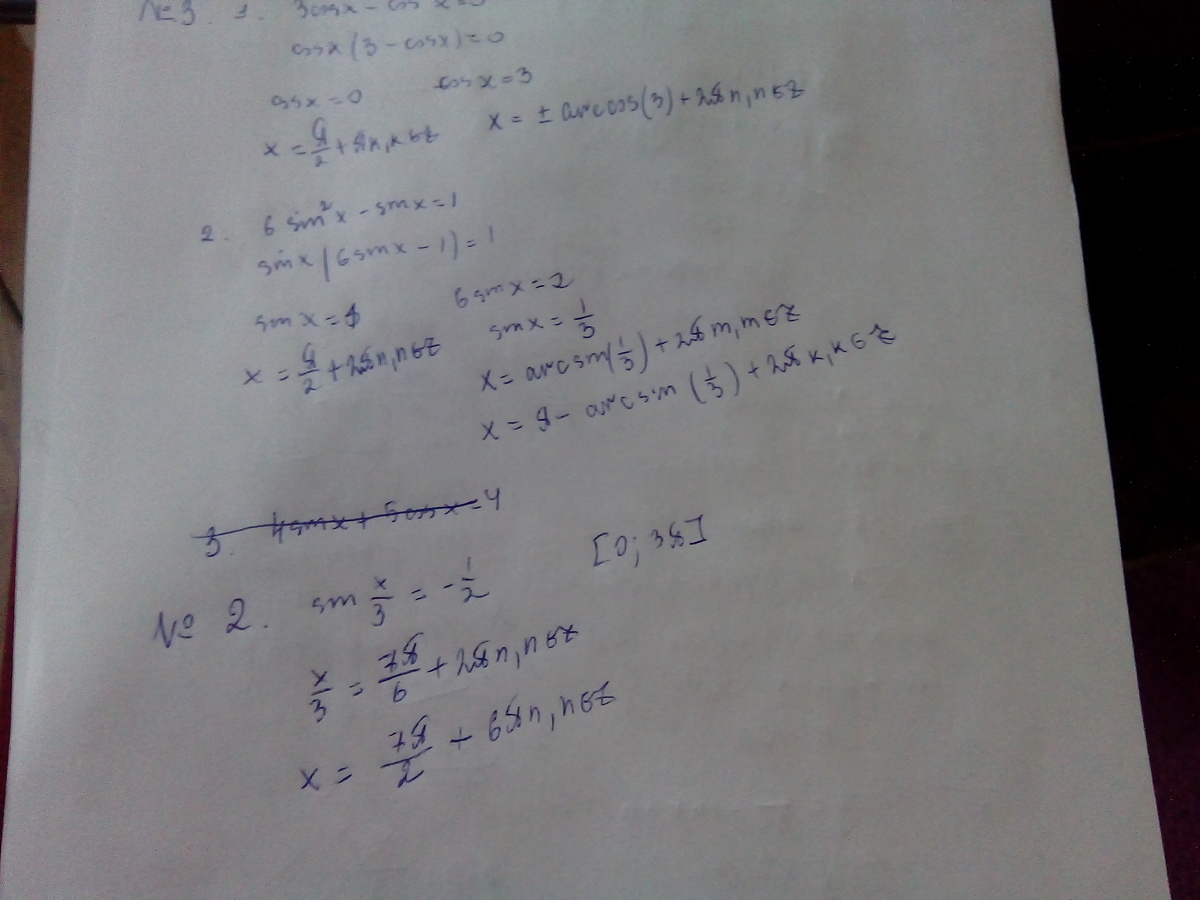 №3. 1. 3cosx - cos²x = 0
cosx(3 - cosx) = 0
cosx = 0 cosx = 3
x = π/2 + πk, k∈Z x = ± arccos(3) + 2πn, n∈Z
2. 6 sin²x - sinx = 1
sinx(6sinx - 1) = 1
sinx = 1 6sinx = 2
x = π/2 + 2πn, n∈Z sinx = 1/3
x = arcsin(1/3) + 2πm, m∈Z
x = π - arcsin(1/3) + 2πk, k∈Z
3. 4sinx + 5cosx = 4
№ 2. sin x/3 = -1/2 [0; 3π]
x/3 = 7π/6 + 2πn, n∈Z
x = 7π/2 + 6πn, n∈Z